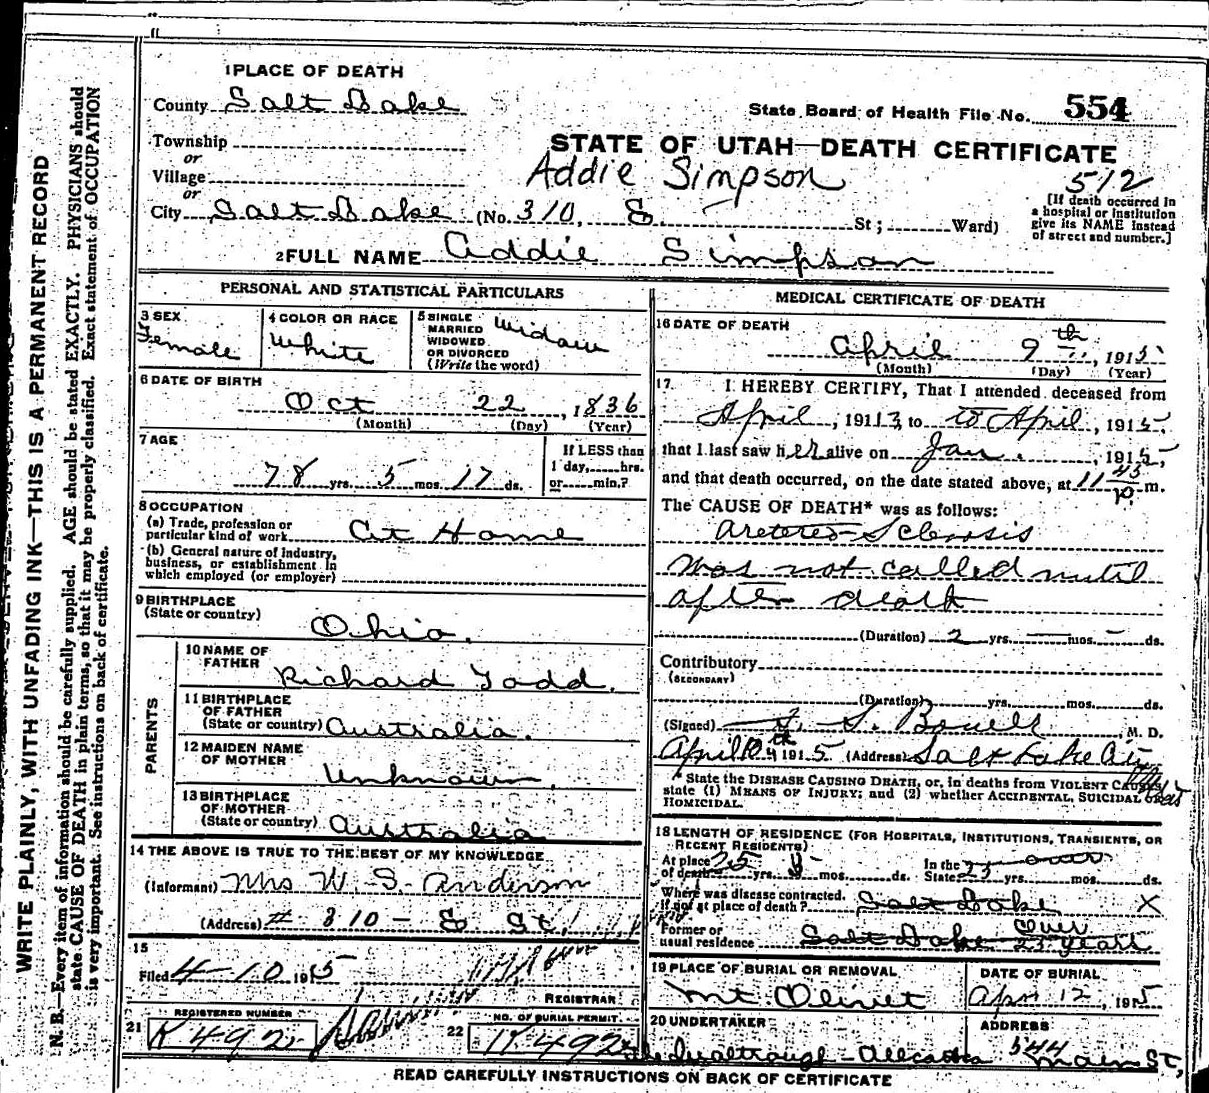 1 PLACE OF DEATH
County Salt Lake
State Board of Health File No. 554
Township
or
Village
or
STATE OF UTAH—DEATH CERTIFICATE
Addie Simpson
512
City Salt Lake (No. 310, E St; Ward)
[If death occurred in a hospital or institution give its NAME instead of street and number.]
2 FULL NAME Addie Simpson
PERSONAL AND STATISTICAL PARTICULARS
3 SEX
Female
4 COLOR OR RACE
White
5 SINGLE
MARRIED
WIDOWED
OR DIVORCED
(Write the word)
Widow
6 DATE OF BIRTH
Oct 22, 1836
(Month) (Day) (Year)
7 AGE
78 yrs. 5 mos. 17 ds.
If LESS than
1 day, hrs.
or min.?
8 OCCUPATION
(a) Trade, profession or
particular kind of work At Home
(b) General nature of industry,
business, or establishment in
which employed (or employer)
9 BIRTHPLACE
(State or country)
Ohio.
PARENTS
10 NAME OF
FATHER
Richard Todd.
11 BIRTHPLACE
OF FATHER
(State or country) Australia.
12 MAIDEN NAME
OF MOTHER
Unknown
13 BIRTHPLACE
OF MOTHER
(State or country) Australia
14 THE ABOVE IS TRUE TO THE BEST OF MY KNOWLEDGE
(Informant) Mrs W. S. Anderson
(Address) # 310 - E St.
15
Filed 4-10 1915
REGISTRAR
21 REGISTERED NUMBER
K 492
22 NO. OF BURIAL PERMIT
K 492
MEDICAL CERTIFICATE OF DEATH
16 DATE OF DEATH
April 9th, 1915
(Month) (Day) (Year)
17 I HEREBY CERTIFY, That I attended deceased from
April, 1913, to to April, 1915,
that I last saw her alive on Jan., 1915,
and that death occurred, on the date stated above, at 11 45 p. m.
The CAUSE OF DEATH* was as follows:
Aretereo-Sclerosis
Was not called until
after death
(Duration) 2 yrs. — mos. – ds.
Contributory
(SECONDARY)
(Duration) yrs. mos. ds.
(Signed) S. Bowers, M. D.
April 1915 (Address) Salt Lake City
* State the DISEASE CAUSING DEATH, or, in deaths from VIOLENT CAUSES,
state (1) MEANS OF INJURY; and (2) whether ACCIDENTAL, SUICIDAL or
HOMICIDAL.
18 LENGTH OF RESIDENCE (FOR HOSPITALS, INSTITUTIONS, TRANSIENTS, OR
RECENT RESIDENTS)
At place
of death 25 yrs. mos. ds.
In the
State 25 yrs. mos. ds.
over
Where was disease contracted,
if not at place of death? Salt Lake X
Former or
usual residence Salt Lake Over 25 years
19 PLACE OF BURIAL OR REMOVAL
Mt Olivet
DATE OF BURIAL
Apr 12, 1915
20 UNDERTAKER
ADDRESS
544 Main St,
READ CAREFULLY INSTRUCTIONS ON BACK OF CERTIFICATE
WRITE PLAINLY, WITH UNFADING INK—THIS IS A PERMANENT RECORD
N. B.—Every item of information should be carefully supplied. AGE should be stated EXACTLY. PHYSICIANS should
state CAUSE OF DEATH in plain terms, so that it may be properly classified. Exact statement of OCCUPATION
is very important. See instructions on back of certificate.